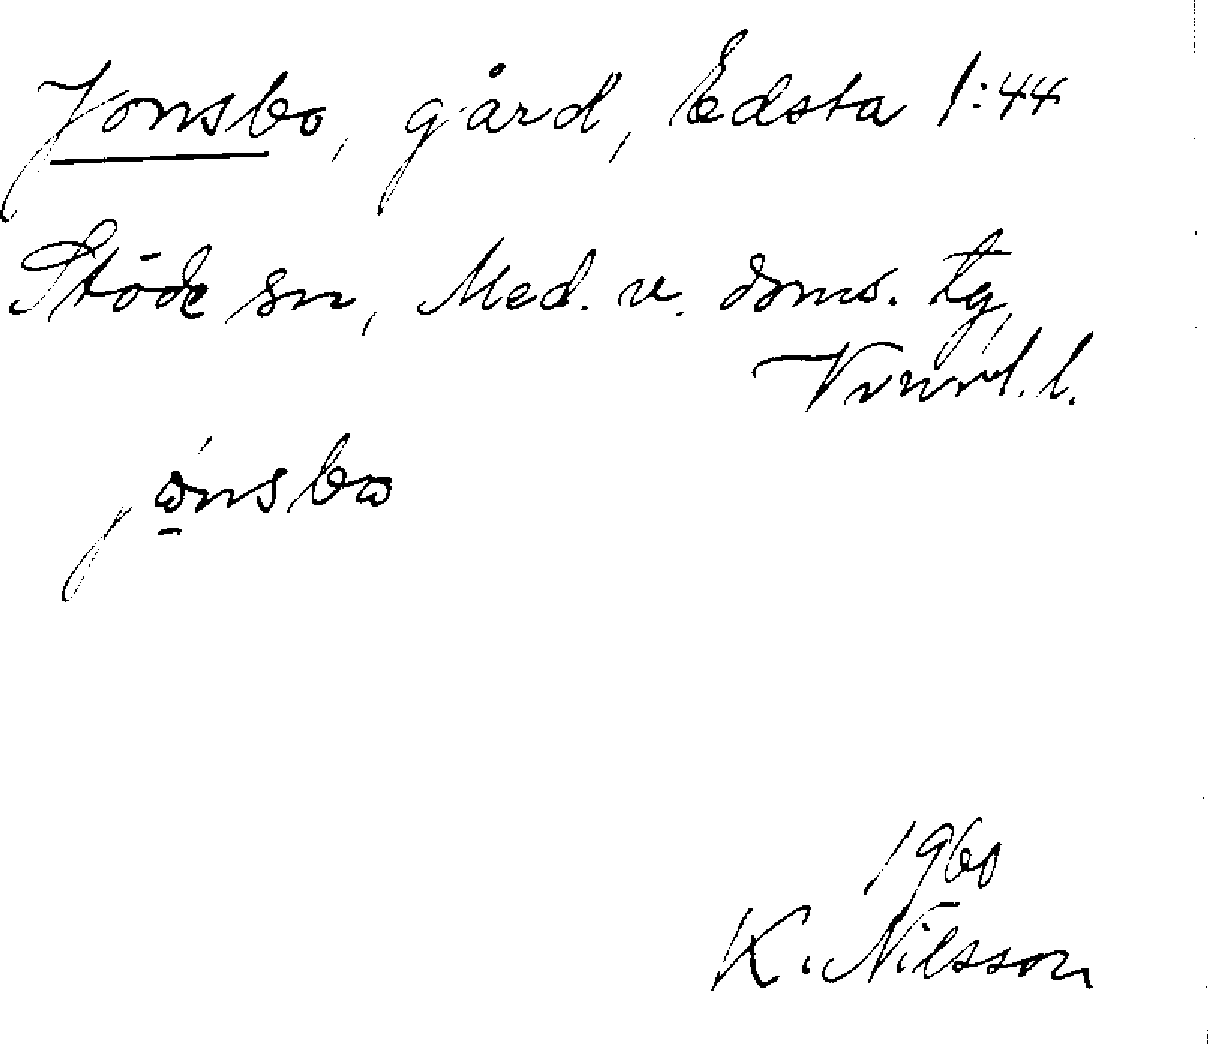 Jonsbo, gård, Edsta 1:44
Stöde sn, Med. v. doms. tg,
Vnorl. l.
jώ̱nsbω
1960
K. Nilsson